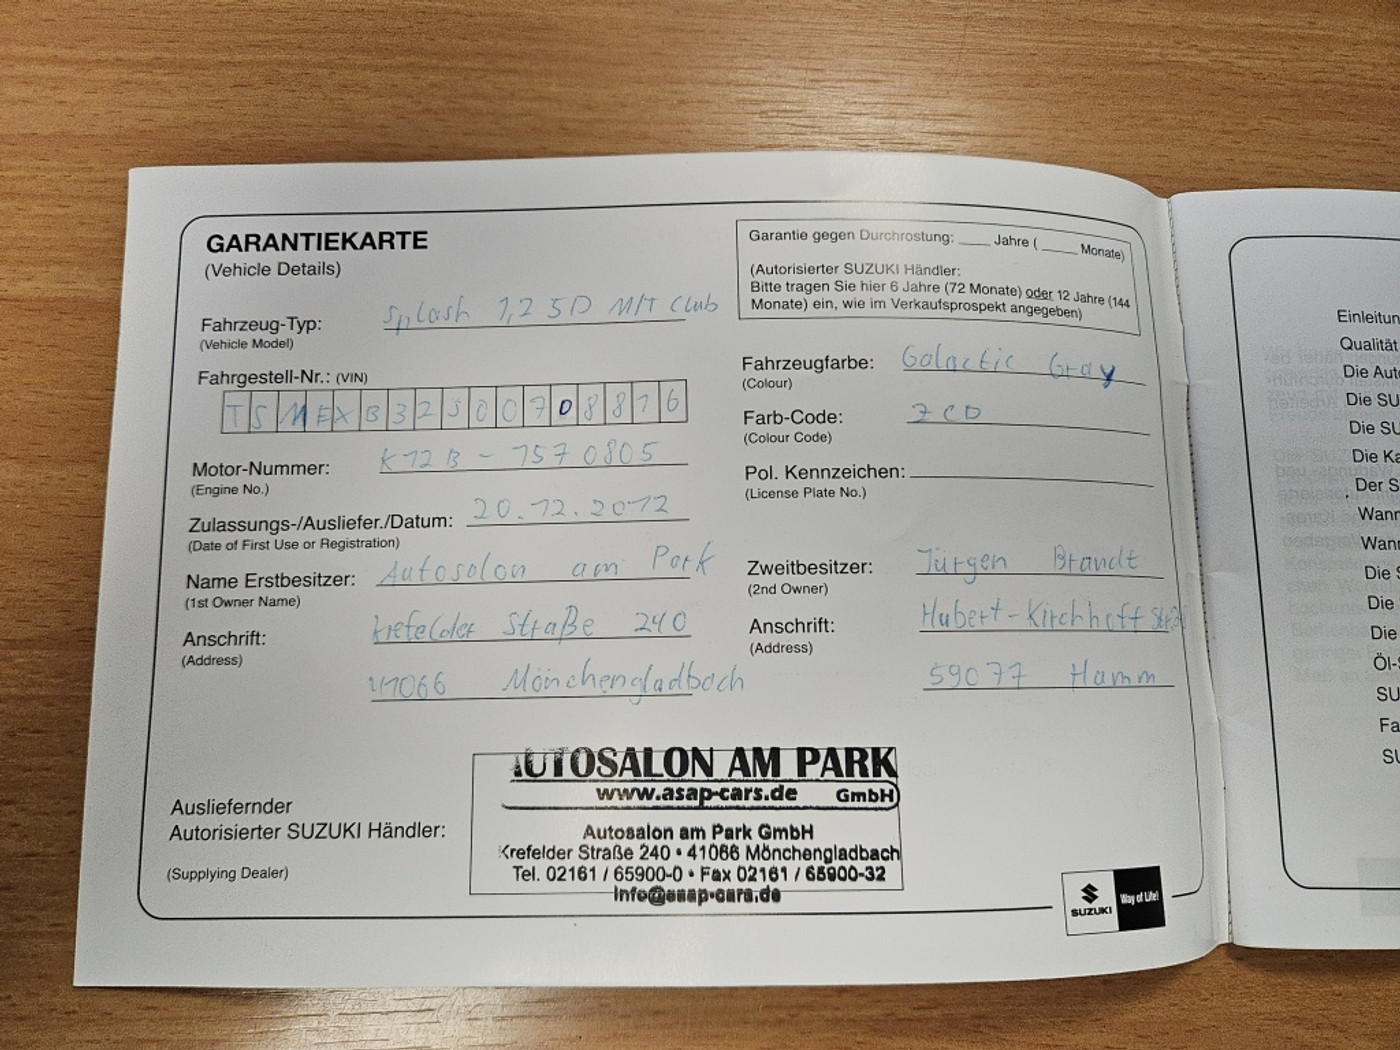 GARANTIEKARTE
(Vehicle Details)
Fahrzeug-Typ: Splash 1,2 5D M/T Club
(Vehicle Model)
Fahrgestell-Nr.: (VIN)
TSMEXB32S00708816
Motor-Nummer: K12B - 1570805
(Engine No.)
Zulassungs-/Ausliefer./Datum: 20.12.2012
(Date of First Use or Registration)
Name Erstbesitzer: Autosalon am Park
(1st Owner Name)
Anschrift: Krefelder Straße 240
(Address)
41066 Mönchengladbach
Garantie gegen Durchrostung: ____ Jahre ( ____ Monate)
(Autorisierter SUZUKI Händler:
Bitte tragen Sie hier 6 Jahre (72 Monate) oder 12 Jahre (144
Monate) ein, wie im Verkaufsprospekt angegeben)
Fahrzeugfarbe: Galactic Gray
(Colour)
Farb-Code: ZCD
(Colour Code)
Pol. Kennzeichen:
(License Plate No.)
Zweitbesitzer: Jürgen Brandt
(2nd Owner)
Anschrift: Hubert-Kirchhoff
(Address)
59077 Hamm
Ausliefernder
Autorisierter SUZUKI Händler:
(Supplying Dealer)
AUTOSALON AM PARK
www.asap-cars.de GmbH
Autosalon am Park GmbH
Krefelder Straße 240 • 41066 Mönchengladbach
Tel. 02161 / 65900-0 • Fax 02161 / 65900-32
info@asap-cars.de
SUZUKI
Way of Life!
Einleitun
Qualität
Die Auto
Die SU
Die SU
Die Ka
Der S
Wann
Wann
Die S
Die
Die
Öl-S
SU
Fa
SU